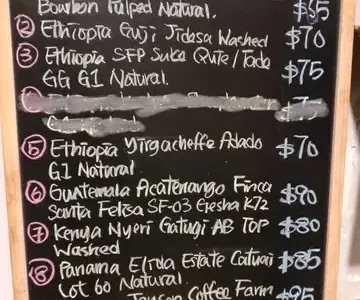 Bourbon Pulped Natural. $65
② Ethiopia Guji Jidasa Washed $70
③ Ethiopia SFP Suke Qute/Tada $75
GG G1 Natural.
⑤ Ethiopia Yirgacheffe Adado $70
G1 Natural
⑥ Guatemala Acatenango Finca $90
Santa Felisa SF-03 Gesha K72
⑦ Kenya Nyeri Gatugi AB TOP $80
Washed
⑧ Panama Elida Estate Catuai $85
Lot 60 Natural
Janson Coffee Farm $95